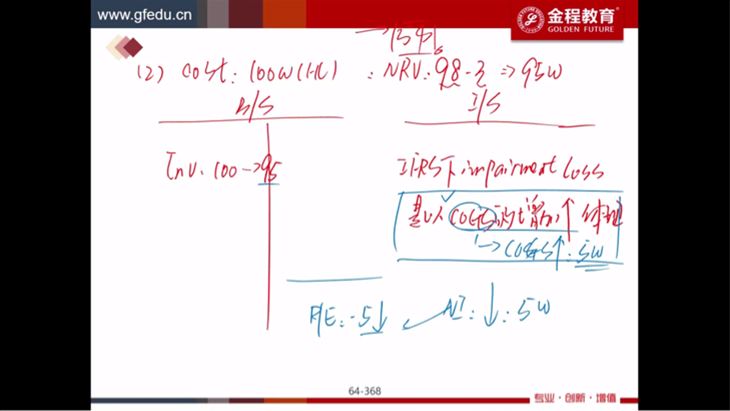 www.gfedu.cn
金程教育
GOLDEN FUTURE
(2) Cost: 100W (HC) : NRV: 98-3 => 95W
B/S
I/S
Inv. 100→95
IFRS下 impairment Loss
是以 COGS 的增加↑ 体现
→ COGS↑: 5W
R/E: -5↓
NI: ↓: 5W
64-368
专业·创新·增值